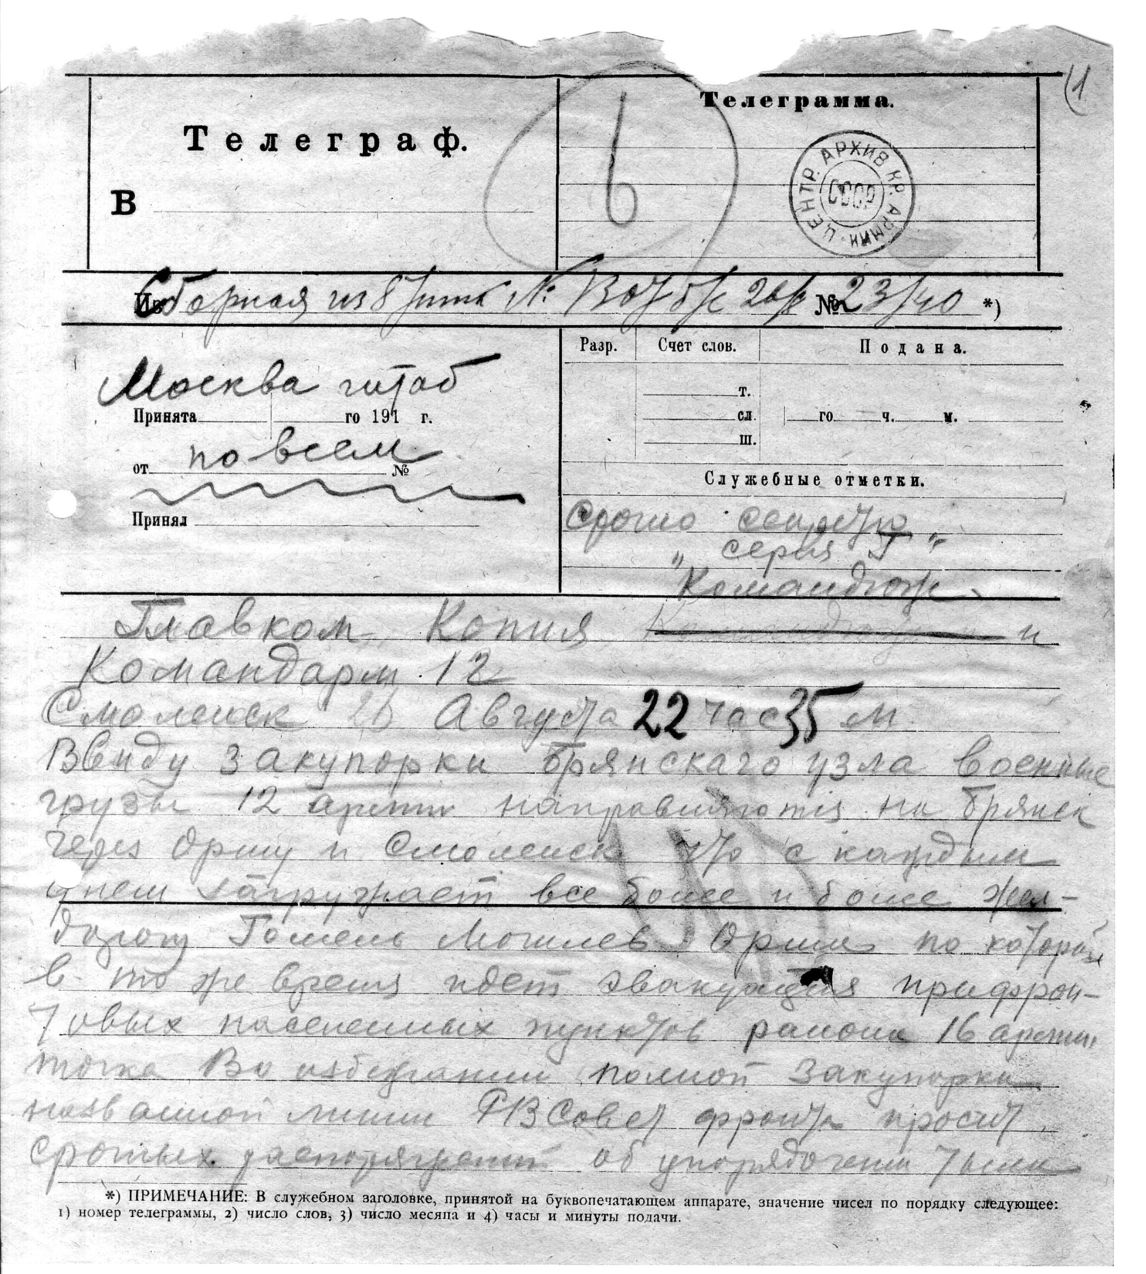 1
Телеграф.
Телеграмма.
6
В
ЦЕНТР. АРХИВ КР. АРМИИ
СССР
Из
Сборная из № 26/8 № 23/40 *)
Москва штаб
Разр. Счет слов. Подана.
Принята го 191 г.
т.
сл.
ш.
го ч. м.
по всем
от №
Принял
Служебные отметки.
Срочно
"серия Г"
"Командюж
Главком Копия и
Командарм 12
Смоленск 26 Августа 22 час 35 м.
Ввиду закупорки Брянскаго узла военные
грузы 12 армии направляются на Брянск
через Оршу и Смоленск что с каждым
днем загружает все более и более жел-
дорогу Гомель Могилев Орша по которой
в то же время идет эвакуация прифрон-
товых населенных пунктов района 16 армии
точка Во избежании полной закупорки
названной линии РВСовет фронта просит
срочных распоряжений об упорядочении тыла
*) ПРИМЕЧАНИЕ: В служебном заголовке, принятой на буквопечатающем аппарате, значение чисел по порядку следующее:
1) номер телеграммы, 2) число слов, 3) число месяца и 4) часы и минуты подачи.